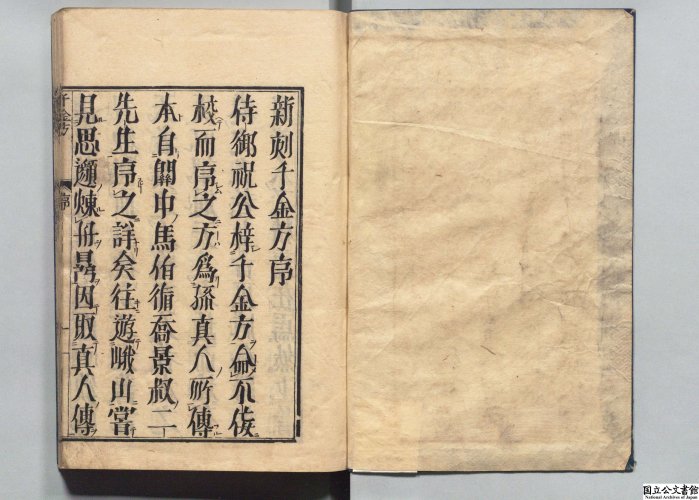 新刻千金方序
侍御祝公梓千金方命不佞
校而序之方為孫真人所傳
本自關中馬伯循喬景叔二
先生序之詳矣往遊峨山嘗
見思邈煉丹爲因取真人傳
千金方
序
国立公文書館
National Archives of Japan